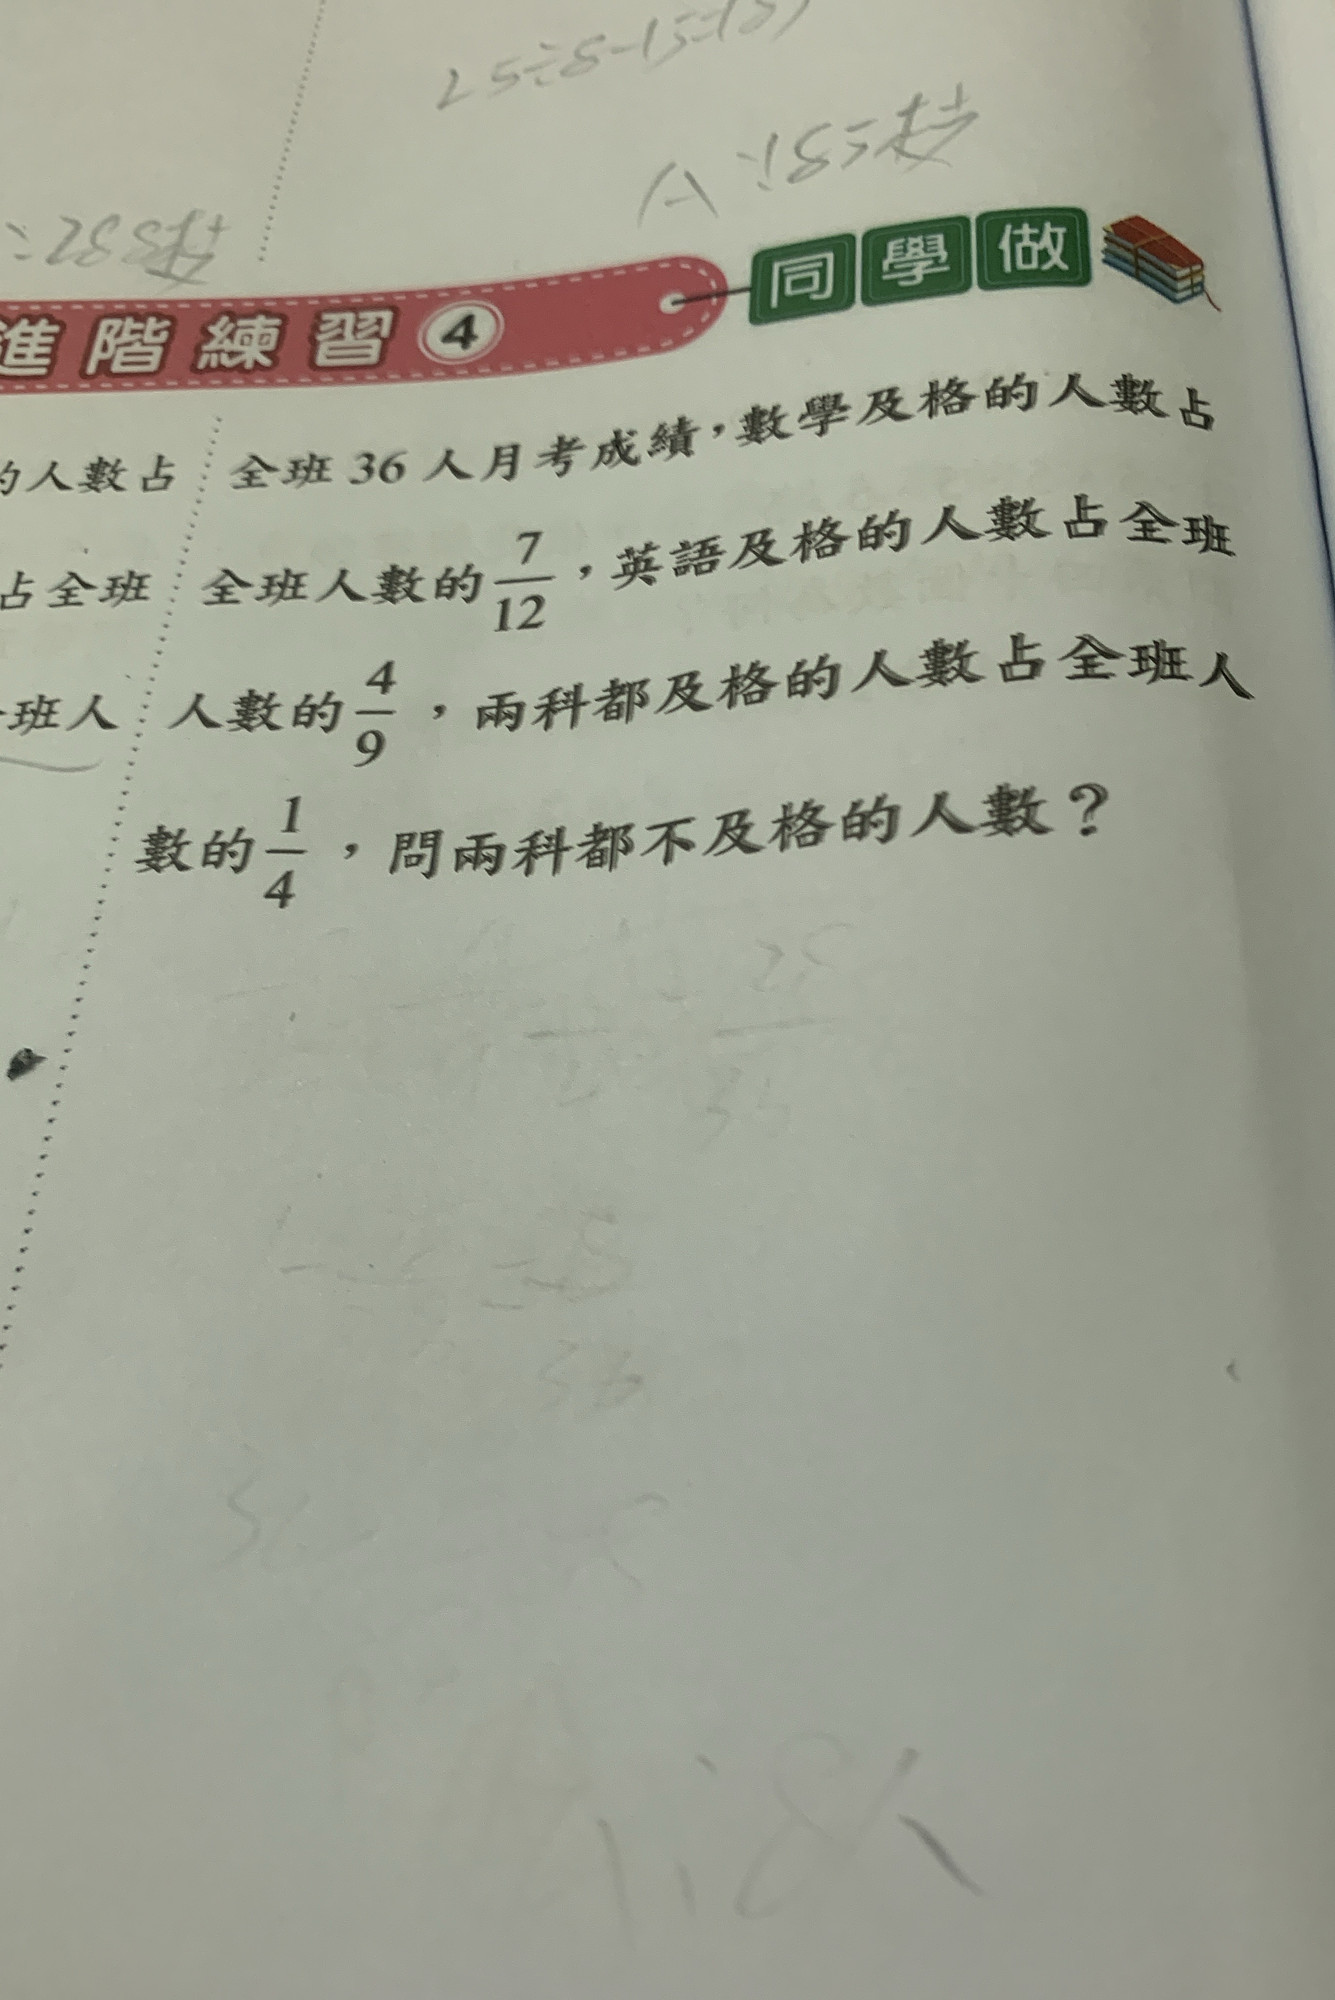 25÷8-15=185
A:185棵
:288棵
進階練習4
同學做
的人數占
占全班
班人
全班36人月考成績，數學及格的人數占
全班人數的7/12，英語及格的人數占全班
人數的4/9，兩科都及格的人數占全班人
數的1/4，問兩科都不及格的人數？
25
36
A:8人